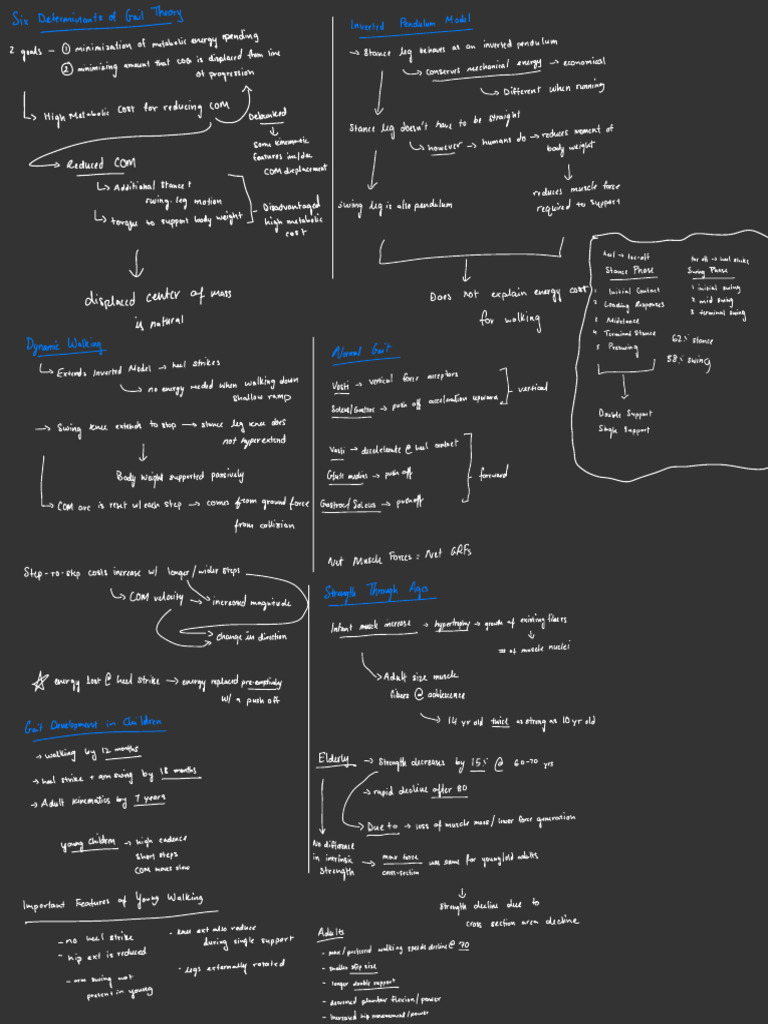 Six Determinants of Gait Theory
2 goals - ① minimization of metabolic energy spending
② minimizing amount that COG is displaced from line
of progression
High Metabolic cost for reducing COM
Debunked
some kinematic
features inc/dec
COM displacement
Reduced COM
Additional stance +
swing-leg motion
torque to support body weight
Disadvantaged
high metabolic
cost
displaced center of mass
is natural
Inverted Pendulum Model
Stance leg behaves as an inverted pendulum
conserves mechanical energy → economical
Different when running
Stance leg doesn't have to be straight
however → humans do → reduces moment of
body weight
reduces muscle force
required to support
swing leg is also pendulum
Does not explain energy cost
for walking
heel → toe-off
Stance Phase
1 Initial Contact
2 Loading Responses
3 Midstance
4 Terminal Stance
5 Preswing
toe off → heel strike
Swing Phase
1 initial swing
2 mid swing
3 terminal swing
62% stance
38% swing
Double Support
Single Support
Dynamic Walking
Extends Inverted Model → heel strikes
no energy needed when walking down
shallow ramp
→ Swing knee extends to stop → stance leg knee does
not hyperextend
Body weight supported passively
COM arc is rest w/ each step → comes from ground force
from collision
Step-to-step costs increase w/ longer/wider steps
COM velocity → increased magnitude
→ change in direction
☆ energy lost @ heel strike → energy replaced pre-emptively
w/ a push off
Normal Gait
Vasti → vertical force acceptors
Soleus/Gastroc → push off acceleration upward
vertical
Vasti → decelerate @ heel contact
Glute medius → push off
Gastroc/Soleus → push off
forward
Net Muscle Forces = Net GRFs
Strength Through Ages
Infant muscle increase → hypertrophy → growth of existing fibers
# of muscle nuclei
Adult size muscle
fibers @ adolescence
14 yr old twice as strong as 10 yr old
Elderly → Strength decreases by 15% @ 60-70 yrs
rapid decline after 80
Due to → loss of muscle mass/lower force generation
No difference
in intrinsic
strength
→ max force
cross-section
was same for young/old adults
strength decline due to
cross section area decline
Gait Development in Children
→ walking by 12 months
→ heel strike + arm swing by 18 months
→ Adult kinematics by 7 years
young children → high cadence
short steps
COM moves slow
Important Features of Young Walking
- no heel strike
- hip ext is reduced
- arm swing not
present in young
- knee ext also reduce
during single support
- legs externally rotated
Adults
- max/preferred walking speeds decline @ 70
- smaller step size
- longer double support
- decreased plantar flexion/power
- Increased hip movement/power